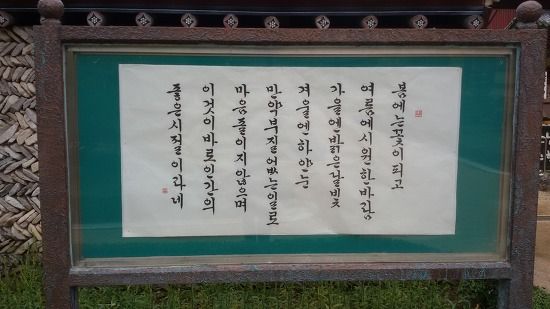 봄에는꽃이피고
여름에시원한바람
가을엔밝은달빛
겨울엔하얀눈
만약부질없는일로
마음졸이지않으며
이것이바로인간의
좋은시절이라네